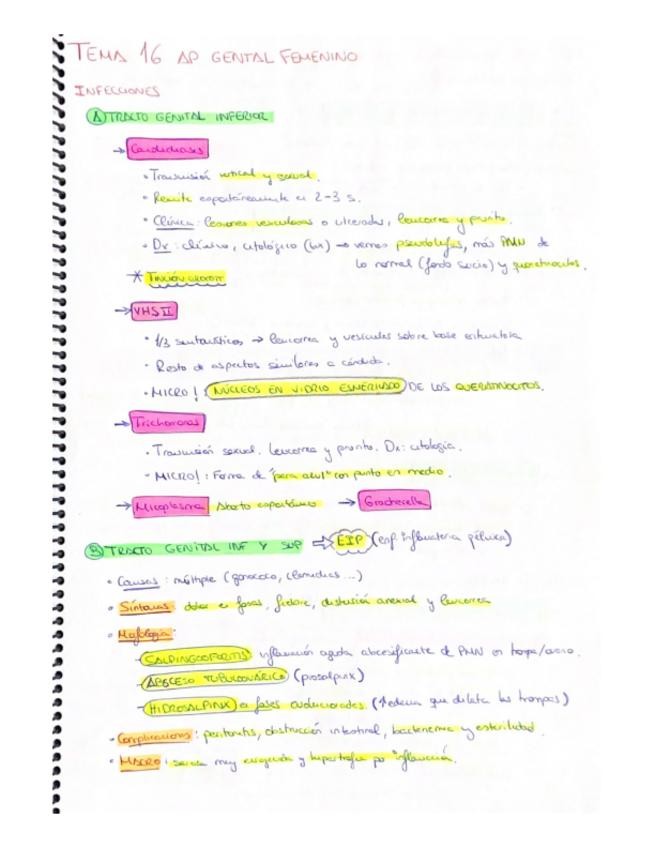 TEMA 16 AP GENITAL FEMENINO
INFECCIONES
A) TRACTO GENITAL INFERIOR
→ Candidiasis
• Transmisión vertical y sexual.
• Remite espontáneamente en 2-3 s.
• Clínica: lesiones vesiculosas o ulceradas, leucorrea y prurito.
• Dx: clínico, citológico → vemos pseudohifas, más PMN de
lo normal (fondo sucio) y queratinocitos.
* Tinción
→ VHS II
• 1/3 sintomáticos → leucorrea y vesículas sobre base eritematosa
• Resto de aspectos similares a cándida.
• MICRO!: NÚCLEOS EN VIDRIO ESMERILADO DE LOS QUERATINOCITOS.
→ Trichomonas
• Transmisión sexual. Leucorrea y prurito. Dx: citología.
• MICRO!: Forma de "pera azul" con punto en medio.
→ Micoplasma Aborto espontáneo → Gardnerella
B) TRACTO GENITAL INF Y SUP ⇒ EIP (enf inflamatoria pélvica)
• Causas: múltiple (gonococo, clamidias...)
• Síntomas: dolor en fosas, fiebre, distensión anexial y leucorrea
• Morfología:
- SALPINGOOFORITIS inflamación aguda abscesificante de PMN en trompa/ovario.
- ABSCESO TUBULOOVÁRICO (piosalpinx)
- HIDROSALPINX en fases evolucionadas. (↑edema que dilata las trompas)
• Complicaciones: peritonitis, obstrucción intestinal, bacteriemia y esterilidad.
• MACRO: serosa muy enrojecida y hipertrofia por inflamación.